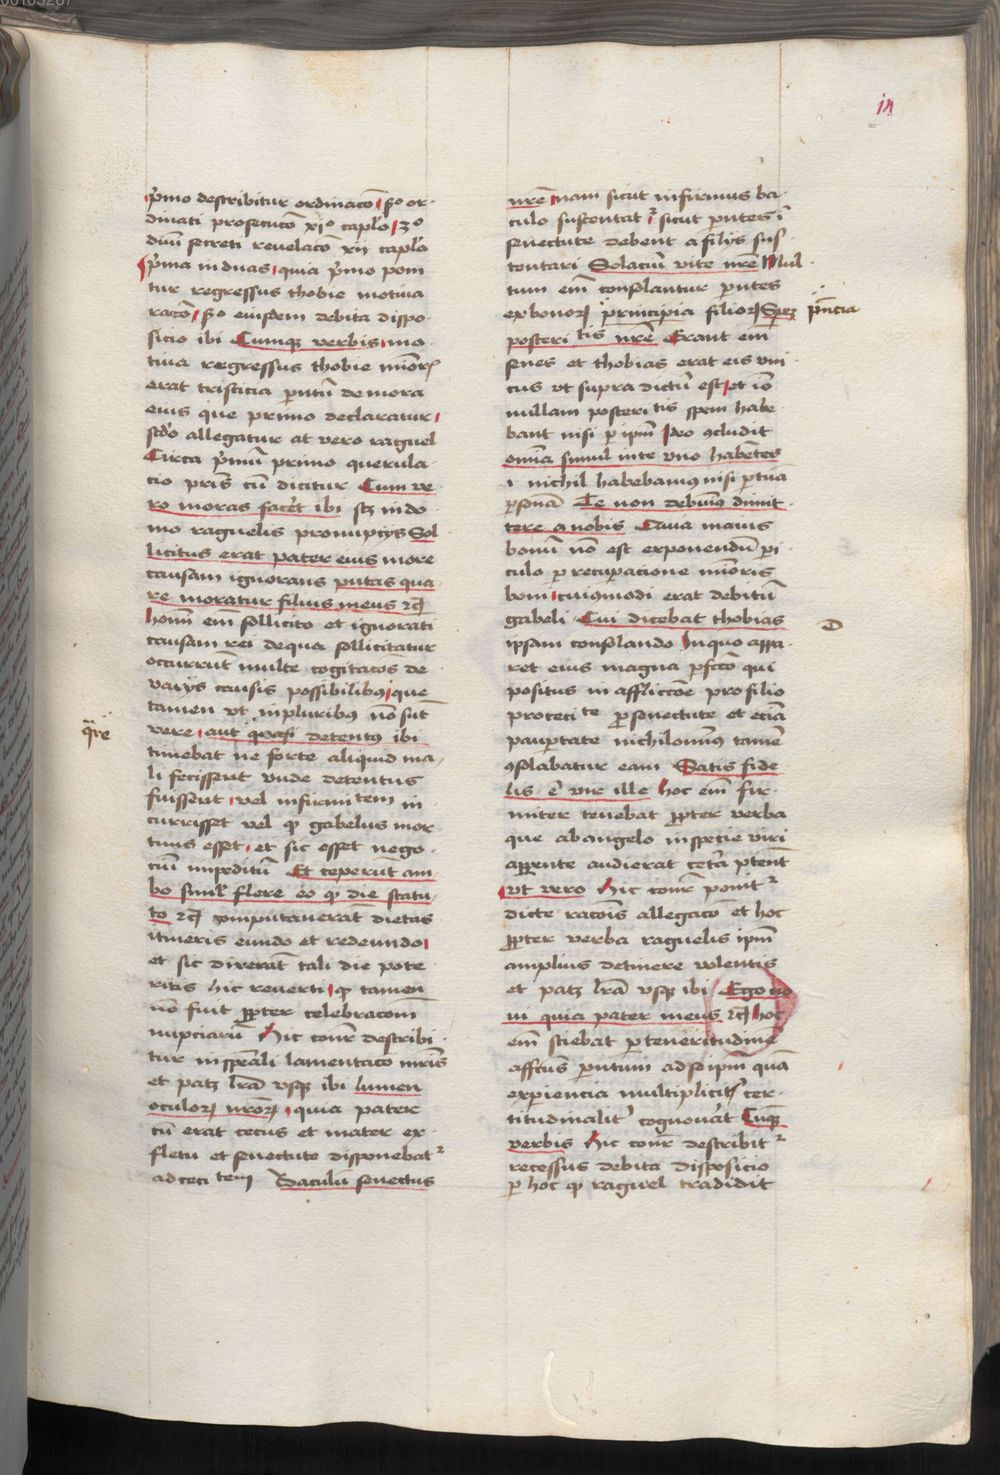 p̄mo describitur ordinacō s̄o or-
dinati prosecucō xjo caplo 3o
diuī secreti reuelacō xii caplo
p̄ma in duas quia p̄mo poni
tur regressus thobie motiua
racō s̄o eiusdem debita dispo
sicio ibi Cumqз verbis mo
tiua regressus thobie miīorꝭ
erat tristicia parntū de mora
eius que primo declaratur
sc̄do allegatur at vero raguel
Circa p̄mū primo querula
cio pris̄ cū dicitur Cum ve
ro moras facet̄ ibi sꝫ in do
mo raguelis pro nupcijs Sol
licitus erat pater eius more
causam ignorans putas qua
re moratur filius meus ⁊c̄
homī em̄ sollicito et ignorati
causam rei de qua sollicitatur
occurrūt multe cogitacōs de
varijs causis possibilibꝫ que
tamen vt in pluribꝫ nō sūt
vere aut quasi detentꝫ ibi
timebat ne forte aliquid ma
li fecisset vnde detentus
fuisset vel infirmitatem in
currisset vel qꝫ gabelus mor
tuus esset et sic esset nego
ciū impeditū Et ceperūt am
bo simꝉ flere eo qꝫ die statu
to ⁊c̄ computauerāt dietas
itineris eundo et redeundo
et sic dixerāt tali die pote
ritis hic reuerti qꝫ tamen
nō fuit ꝓpter celebracōm
nupciarū Hic cōnr̄ describi
tur in spēali lamentacō mr̄is
et patꝫ lrā vsqꝫ ibi lumen
oculorꝫ nrōrꝫ quia pater
cū erat cecus et mater ex
fletu et senectute disponebatꝛ
ad cecitatem Baculū senectus
qr̄e
nrē nam sicut infirmus ba
culo sustentatꝛ sicut parntes ī
senectute debent a filijs sus
tentari Solaciū vite nrē Mul
tum em̄ consolantur parntes
ex bonorꝫ principia filiorꝫ Spez
posteritatis nrē Erant em̄
senes et thobias erat eis vni
cus vt supra dictū est et iō
nullam posteritatis spem habe
bant nisi per ipm̄ Ideo ꝯcludit
omīa simul in te vno habētes
i nichil habebamꝰ nisi per tua
ꝑsonā Te non debuimꝰ dimit
tere a nobis Causa maius
bonū nō est exponendū peri
culo pro recuperacione miīoris
boni cuiꝰmodi erat debitū
gabeli Cui dicebat thobias
ipsam consolando In quo appa
ret eius magna ꝑfcc̄o qui
positus in affliccōe pro filio
ꝓ cecitate ꝑ senectute et eciā
paupertate nichilominꝰ tamē
ꝯsolabatur eam Satis fide
lis ē vir ille hoc em̄ fir
miter tenebat ꝓpter verba
que ab angelo in specie viri
apparente audierat cetera patent
vt vero Hic cōnr̄ ponitꝛ
dicte racōis allegacō et hoc
ꝓpter verba raguelis ipm̄
amplius detinere volentis
et patꝫ lrā vsqꝫ ibi Ego no
ui quia pater meus ⁊c̄ hoc
em̄ sciebat per teneritudinē
affcūs parntum ad se ipm̄ quā
experiencia multipliciter cer
titudinaliter cognouerat Cumqꝫ
verbis Hic cōnr̄ describitꝛ
recessus debita disposicio
per hoc qꝫ raguel tradidit